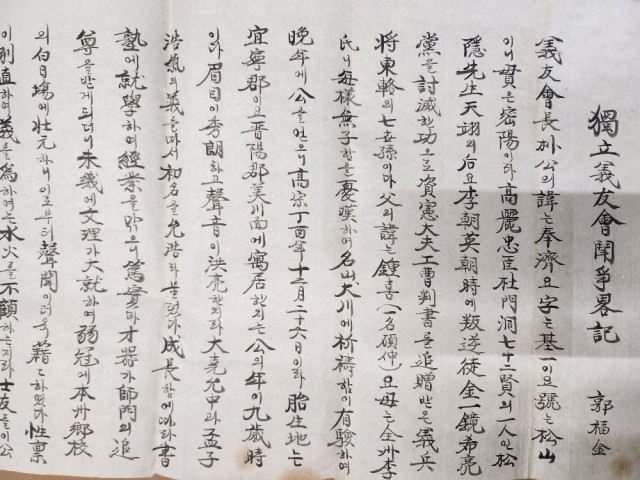 獨立義友會鬪爭畧記
郭福金
義友會長朴公의諱는奉濟요字는基一이요號는松山
이니貫은密陽이라高麗忠臣杜門洞七十二賢의一人인松
隱先生天翊의后요李朝英朝時에叛逆徒金一鏡希亮
黨을討滅한功으로資憲大夫工曹判書를追贈받은義兵
將東輅의七世孫이라父의諱는鍾喜(一名碩仲)요母는全州李
氏니每樣無子함을憂嘆하여名山大川에祈禱함이有驗하여
晚年에公을얻으니高宗丁酉年十二月二十六日이라胎生地는
宜寧郡이요晋陽郡美川面에寓居했지는公의年이九歲時
이라眉目이秀朗하고聲音이洪亮했지라大堯允中과孟子
浩氣의義를따서初名을允浩라불렀다成長함에따라書
塾에就學하여經業을닦으니篤實한才器가師門의追
尊을받게되더니未幾에文理가大就하여弱冠에本州鄕校
의白日場에壯元하니이로부터聲聞이더욱藉々하였다性稟
이剛直하여義를爲하여는水火를不顧하는지라士友들이公